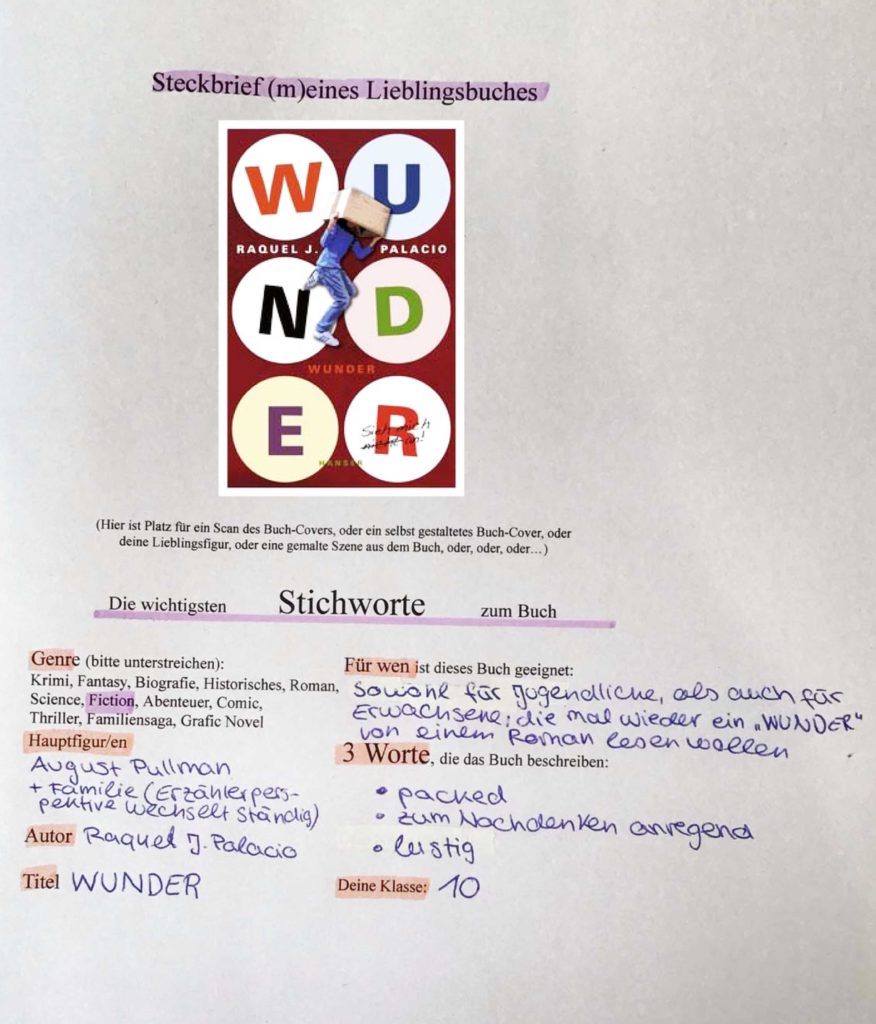 Steckbrief (m)eines Lieblingsbuches
W U
RAQUEL J. PALACIO
N D
WUNDER
E R
Sieh mich
nicht an!
HANSER
(Hier ist Platz für ein Scan des Buch-Covers, oder ein selbst gestaltetes Buch-Cover, oder
deine Lieblingsfigur, oder eine gemalte Szene aus dem Buch, oder, oder, oder…)
Die wichtigsten Stichworte zum Buch
Genre (bitte unterstreichen):
Krimi, Fantasy, Biografie, Historisches, Roman,
Science, Fiction, Abenteuer, Comic,
Thriller, Familiensaga, Grafic Novel
Hauptfigur/en
August Pullman
+ Familie (Erzählerpers-
pektive wechselt ständig)
Autor Raquel J. Palacio
Titel WUNDER
Für wen ist dieses Buch geeignet:
Sowohl für Jugendliche, als auch für
Erwachsene, die mal wieder ein „WUNDER“
von einem Roman lesen wollen
3 Worte, die das Buch beschreiben:
• packed
• zum Nachdenken anregend
• lustig
Deine Klasse: 10